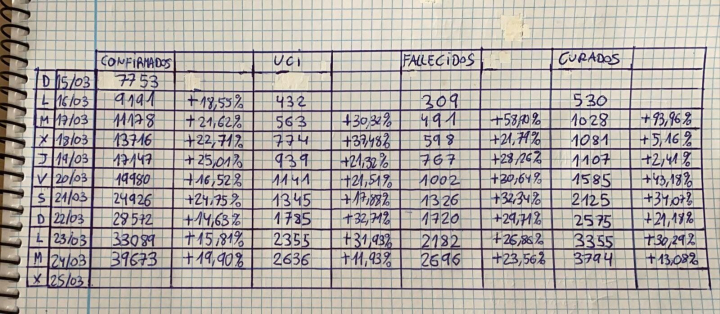 CONFIRMADOS UCI FALLECIDOS CURADOS
D 15/03 7753
L 16/03 9191 +18,55% 432 309 530
M 17/03 11178 +21,62% 563 +30,32% 491 +58,90% 1028 +93,96%
X 18/03 13716 +22,71% 774 +37,48% 598 +21,79% 1081 +5,16%
J 19/03 17147 +25,01% 939 +21,32% 767 +28,26% 1107 +2,41%
V 20/03 19980 +16,52% 1141 +21,51% 1002 +30,64% 1585 +43,18%
S 21/03 24926 +24,75% 1345 +17,88% 1326 +32,34% 2125 +34,07%
D 22/03 28572 +14,63% 1785 +32,71% 1720 +29,71% 2575 +21,18%
L 23/03 33089 +15,81% 2355 +31,93% 2182 +26,86% 3355 +30,29%
M 24/03 39673 +19,90% 2636 +11,93% 2696 +23,56% 3794 +13,08%
X 25/03